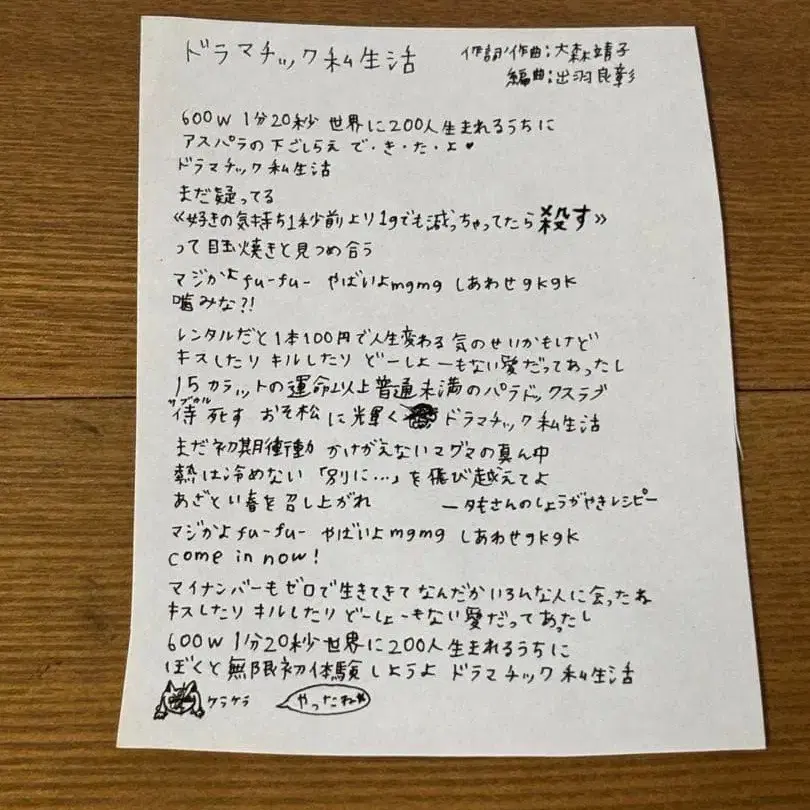 ドラマチック私生活
作詞/作曲:大森靖子
編曲:出羽良彰
600W 1分20秒 世界に200人生まれるうちに
アスパラの下ごしらえ で・き・た・よ♥
ドラマチック私生活
まだ疑ってる
《好きの気持ち1秒前より1gでも減っちゃってたら殺す》
って目玉焼きと見つめ合う
マジかよfu-fu- やばいよmgmg しあわせgkgk
噛みな?!
レンタルだと1本100円で人生変わる気のせいかもけど
キスしたり キルしたり どーしよーもない愛だってあったし
15カラットの運命以上普通未満のパラドックスラブ
サブカル
侍 死す おそ松 に 輝く ドラマチック私生活
まだ初期衝動 かけがえないマグマの真ん中
熱は冷めない 「別に…」を飛び越えてよ
あざとい春を召し上がれ
ータモさんのしょうがやきレシピー
マジかよfu-fu- やばいよmgmg しあわせgkgk
come in now!
マイナンバーもゼロで生きてきて なんだかいろんな人に会ったね
キスしたり キルしたり どーしよーもない愛だってあったし
600W 1分20秒 世界に200人生まれるうちに
ぼくと無限初体験 しようよ ドラマチック私生活
ケラケラ
やったね